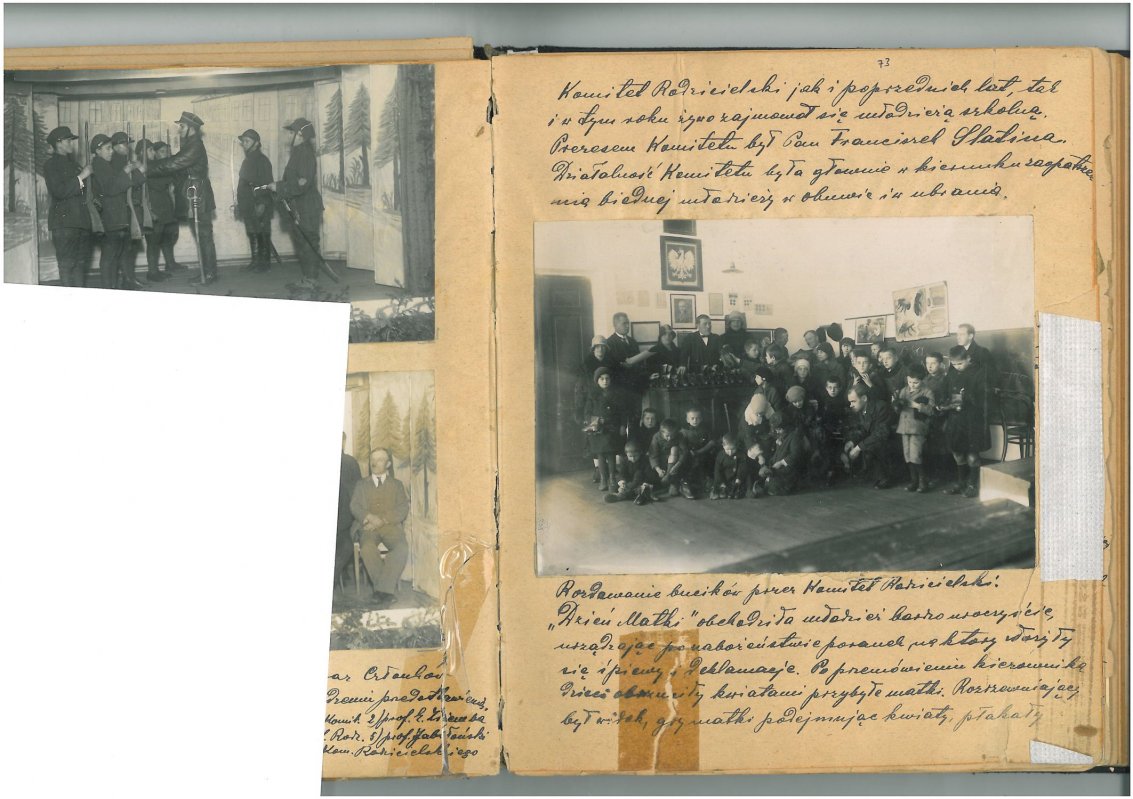 az Członków
2) prof. E. Ziemba
Rodz. 5) prof. Jabłoński
Kom. Rodzicielskiego
73
Komitet Rodzicielski jak i poprzednich lat, tak
i w tym roku żywo zajmował się młodzieżą szkolną.
Prezesem Komitetu był Pan Franciszek Slatina.
Działalność Komitetu była głównie w kierunku zaopatrze-
nia biednej młodzieży w obuwie i w ubrania.
Rozdawanie bucików przez Komitet Rodzicielski.
„Dzień Matki" obchodziła młodzież bardzo uroczyście,
urządzając po nabożeństwie poranek, na który złożyły
się śpiewy i deklamacje. Po przemówieniu kierownika
dzieci obrzuciły kwiatami przybyłe matki. Rozrzewniający
był widok, gdy matki podejmując kwiaty, płakały